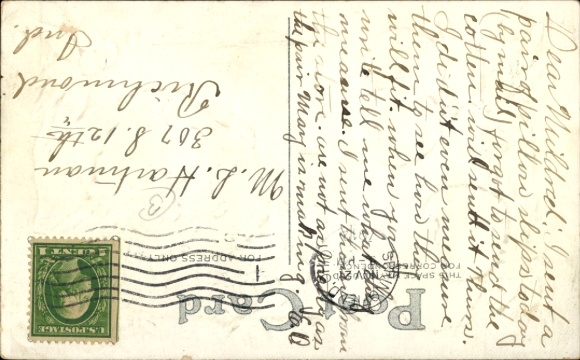 Dear Mildred:- sent a
pair of pillow slips today
by mail, forgot to send the
cotton. will send it thurs.
I didn't even measure
them to see how they
will fit. when you
write tell me what they
measure. I sent them from
the store. are not as nice as
the pair Mary is making
M. L. Hartman
307 S. 12th
Richmond
Ind.
3
Post Card
THIS SPACE
FOR CORRESPONDENCE
FOR ADDRESS ONLY
U.S. POSTAGE
1 CENT 1